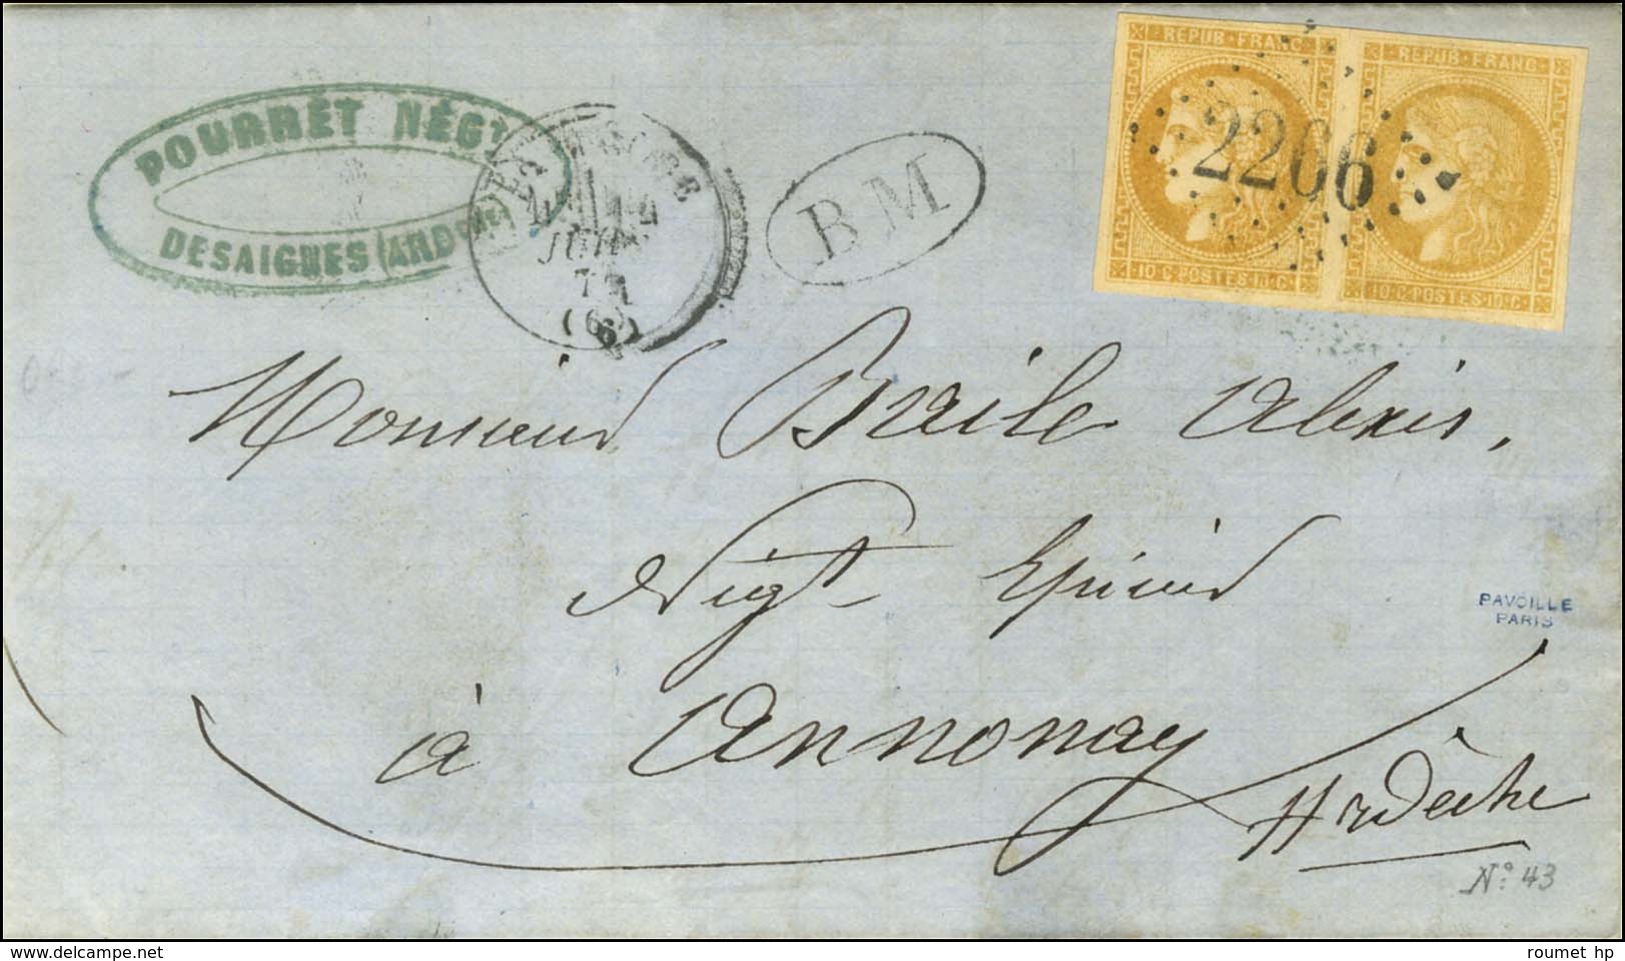 POURRET NÉGT
DESAIGNES (ARDÈCHE)
JUIN
71
(6)
B M
REPUB·FRANC·
10·C·POSTES·10·C·
REPUB·FRANC·
10·C·POSTES·10·C·
2266
Monsieur Braile Alexis,
Négt Epicier
à Annonay
Ardèche
PAVOILLE
PARIS
No. 43
www.delcampe.net
roumet hp